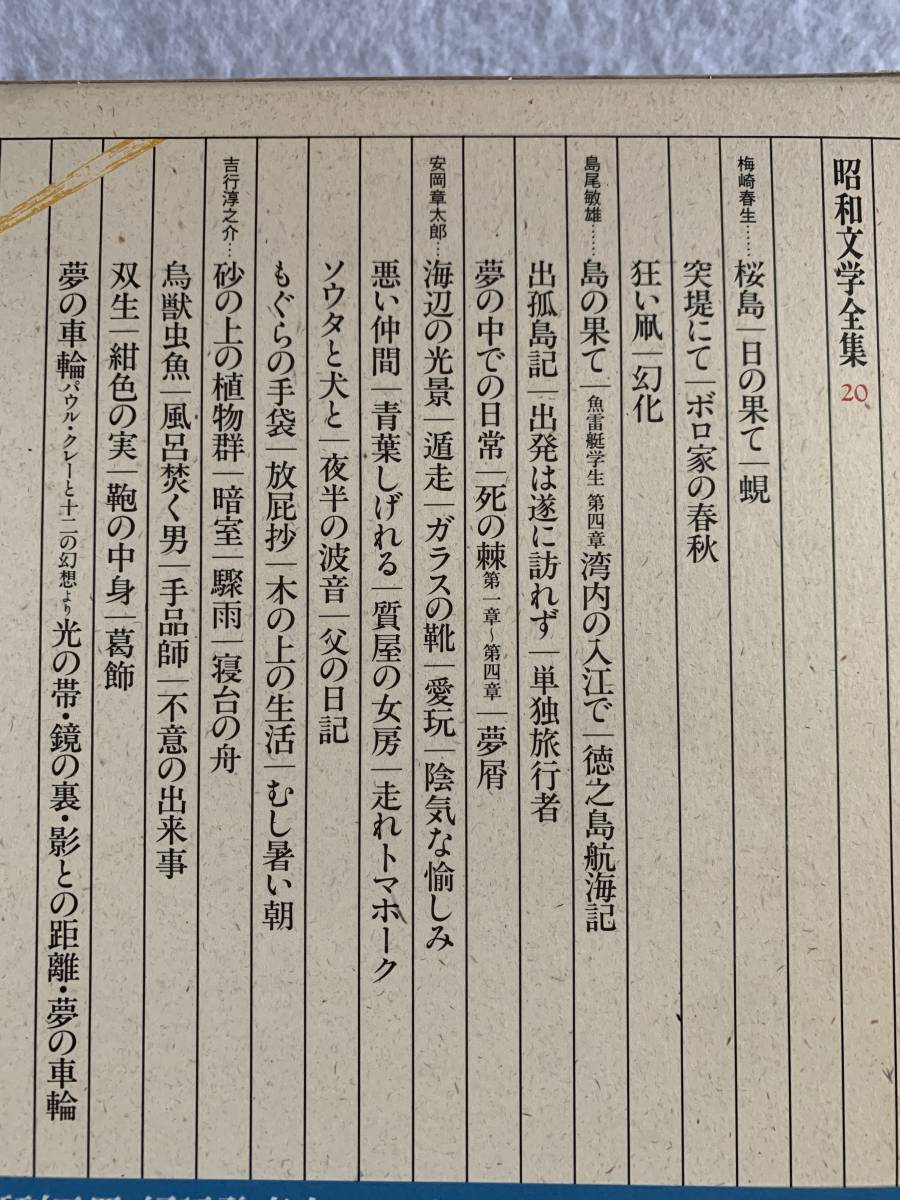 昭和文学全集 20
梅崎春生……桜島│日の果て│蜆
突堤にて│ボロ家の春秋
狂い凧│幻化
島尾敏雄……島の果て│魚雷艇学生 第四章 湾内の入江で│徳之島航海記
出孤島記│出発は遂に訪れず│単独旅行者
夢の中での日常│死の棘 第一章~第四章│夢屑
安岡章太郎…海辺の光景│遁走│ガラスの靴│愛玩│陰気な愉しみ
悪い仲間│青葉しげれる│質屋の女房│走れトマホーク
ソウタと犬と│夜半の波音│父の日記
もぐらの手袋│放屁抄│木の上の生活│むし暑い朝
吉行淳之介…砂の上の植物群│暗室│驟雨│寝台の舟
鳥獣虫魚│風呂焚く男│手品師│不意の出来事
双生│紺色の実│鞄の中身│葛飾
夢の車輪 パウル・クレーと十二の幻想より 光の帯・鏡の裏・影との距離・夢の車輪